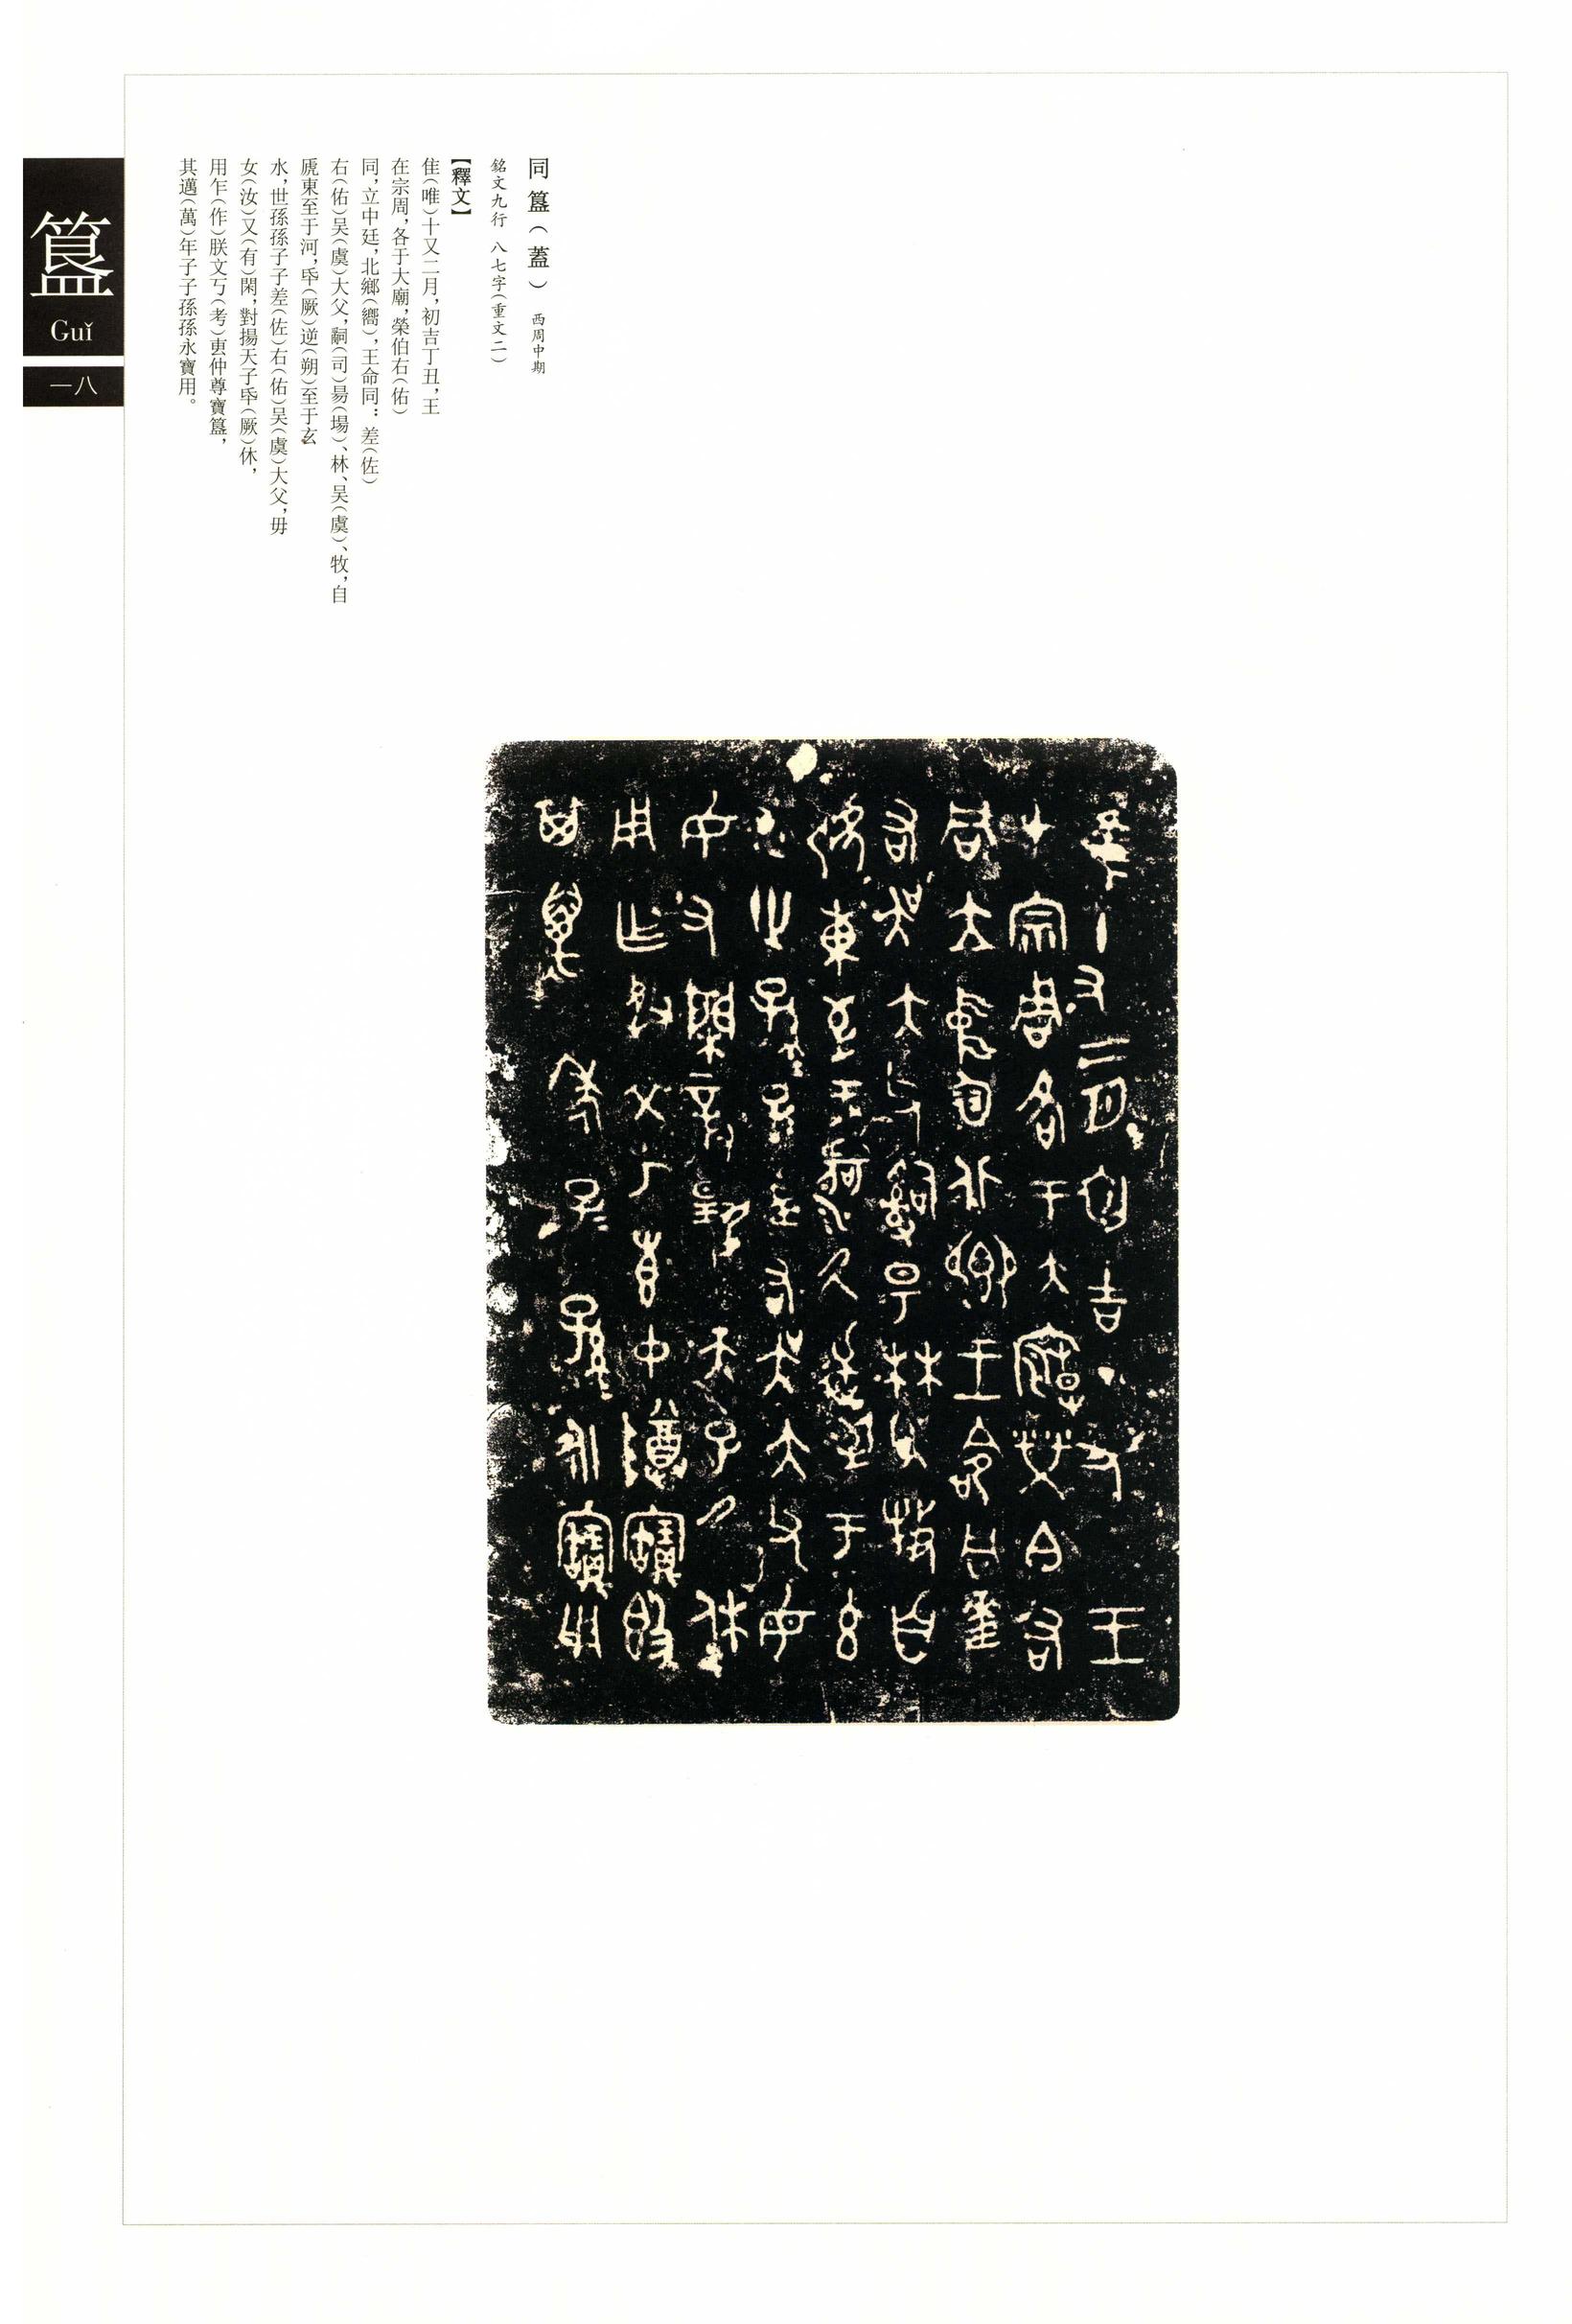 同簋（蓋） 西周中期
銘文九行 八七字（重文二）
【釋文】
隹（唯）十又二月，初吉丁丑，王
在宗周，各于大廟，榮伯右（佑）
同，立中廷，北鄉（嚮），王命同：差（佐）
右（佑）吴（虞）大父，嗣（司）昜（場）、林、吴（虞）、牧，自
淲東至于河，氒（厥）逆（朔）至于玄
水，世孫孫子子差（佐）右（佑）吴（虞）大父，毋
女（汝）又（有）閑，對揚天子氒（厥）休，
用乍（作）朕文丂（考）叀仲尊寶簋，
其邁（萬）年子子孫孫永寶用。
簋
Guǐ
一八